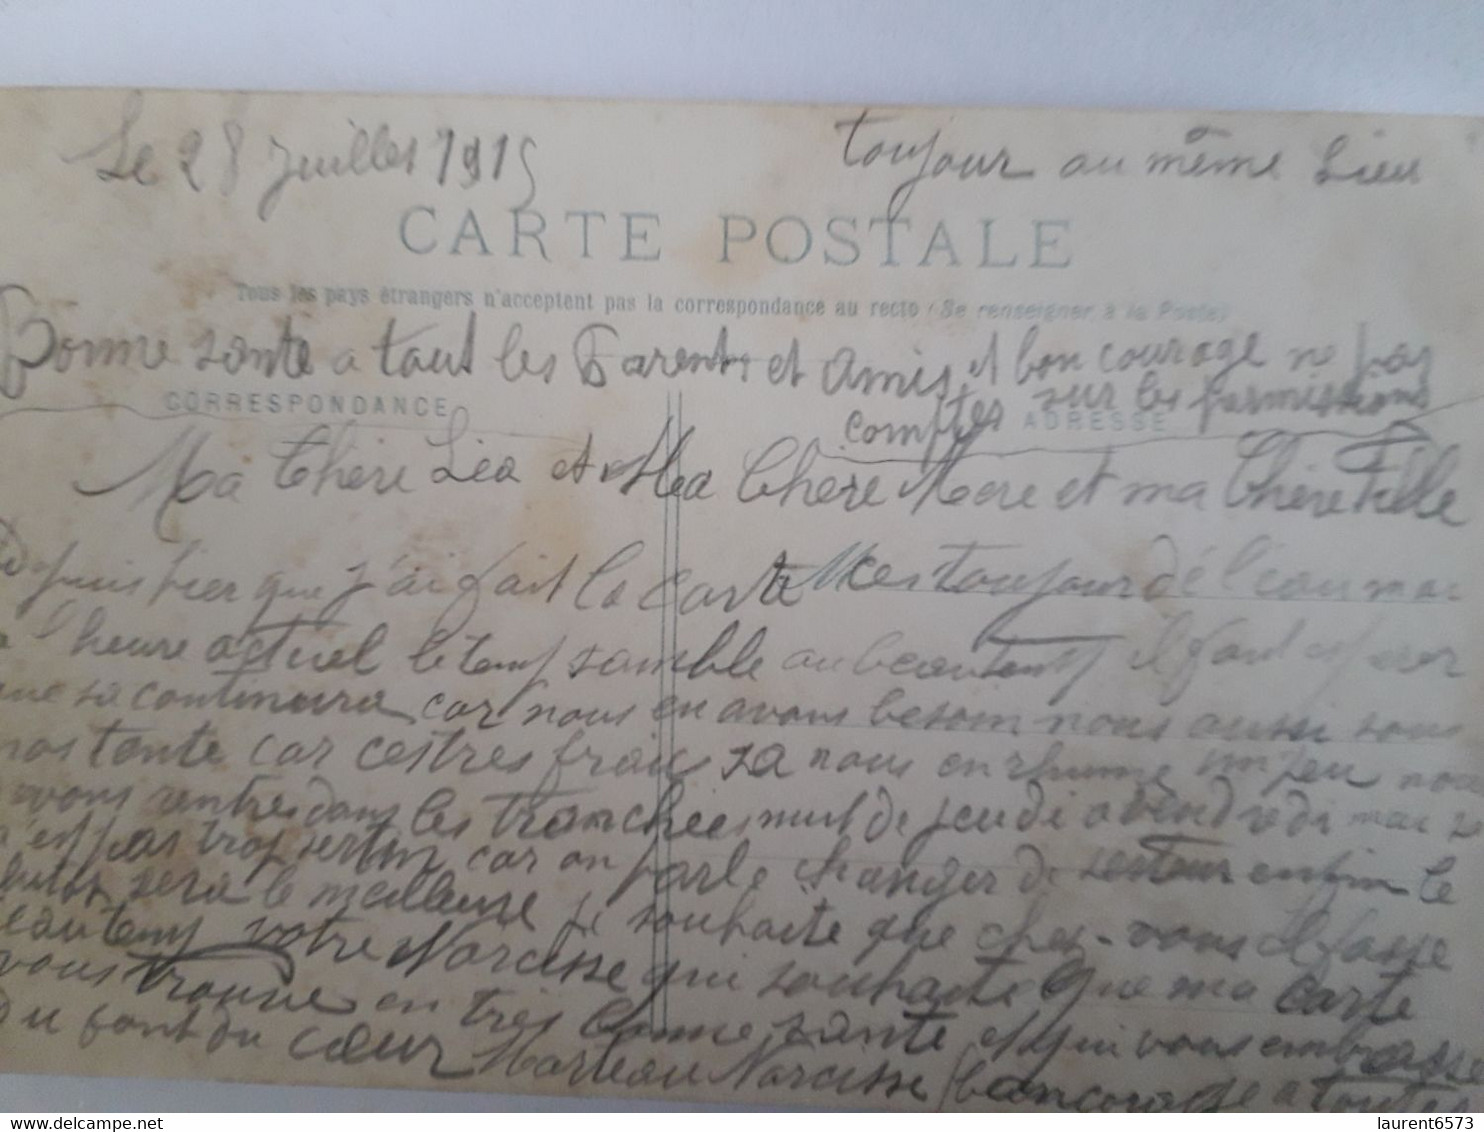 Le 28 Juillet 1915
toujour au même Lieu
CARTE POSTALE
Tous les pays étrangers n'acceptent pas la correspondance au recto (Se renseigner à la Poste)
Bonne sante a tout les Parents et Amis et bon courage ne pas
comptes sur les permissions
CORRESPONDANCE
ADRESSE
Ma Chere Léa et Ma Chere Mere et ma Chere Fille
depuis hier que j'ai fait la carte cest toujour dé l'eau mai
a l'heure actuel le temp samble au beautemp il faut esperer
que sa continura car nous en avons besoin nous aussi sous
nos tente car cest tres frais sa nous enrhume un peu nous
avons rentres dans les tranchees nuit de jeudi a vendredi mai se
n'est pas trop sertin car on parle changer de secteur enfin le
plutot sera le meilleure je souhaite que chez-vous il fasse
beautemp votre Narcisse qui souhaite que ma carte
vous trouve en tres bonne sante et qui vous embrasse
du font du cœur Marteau Narcisse boncourage a toutes
laurent6573